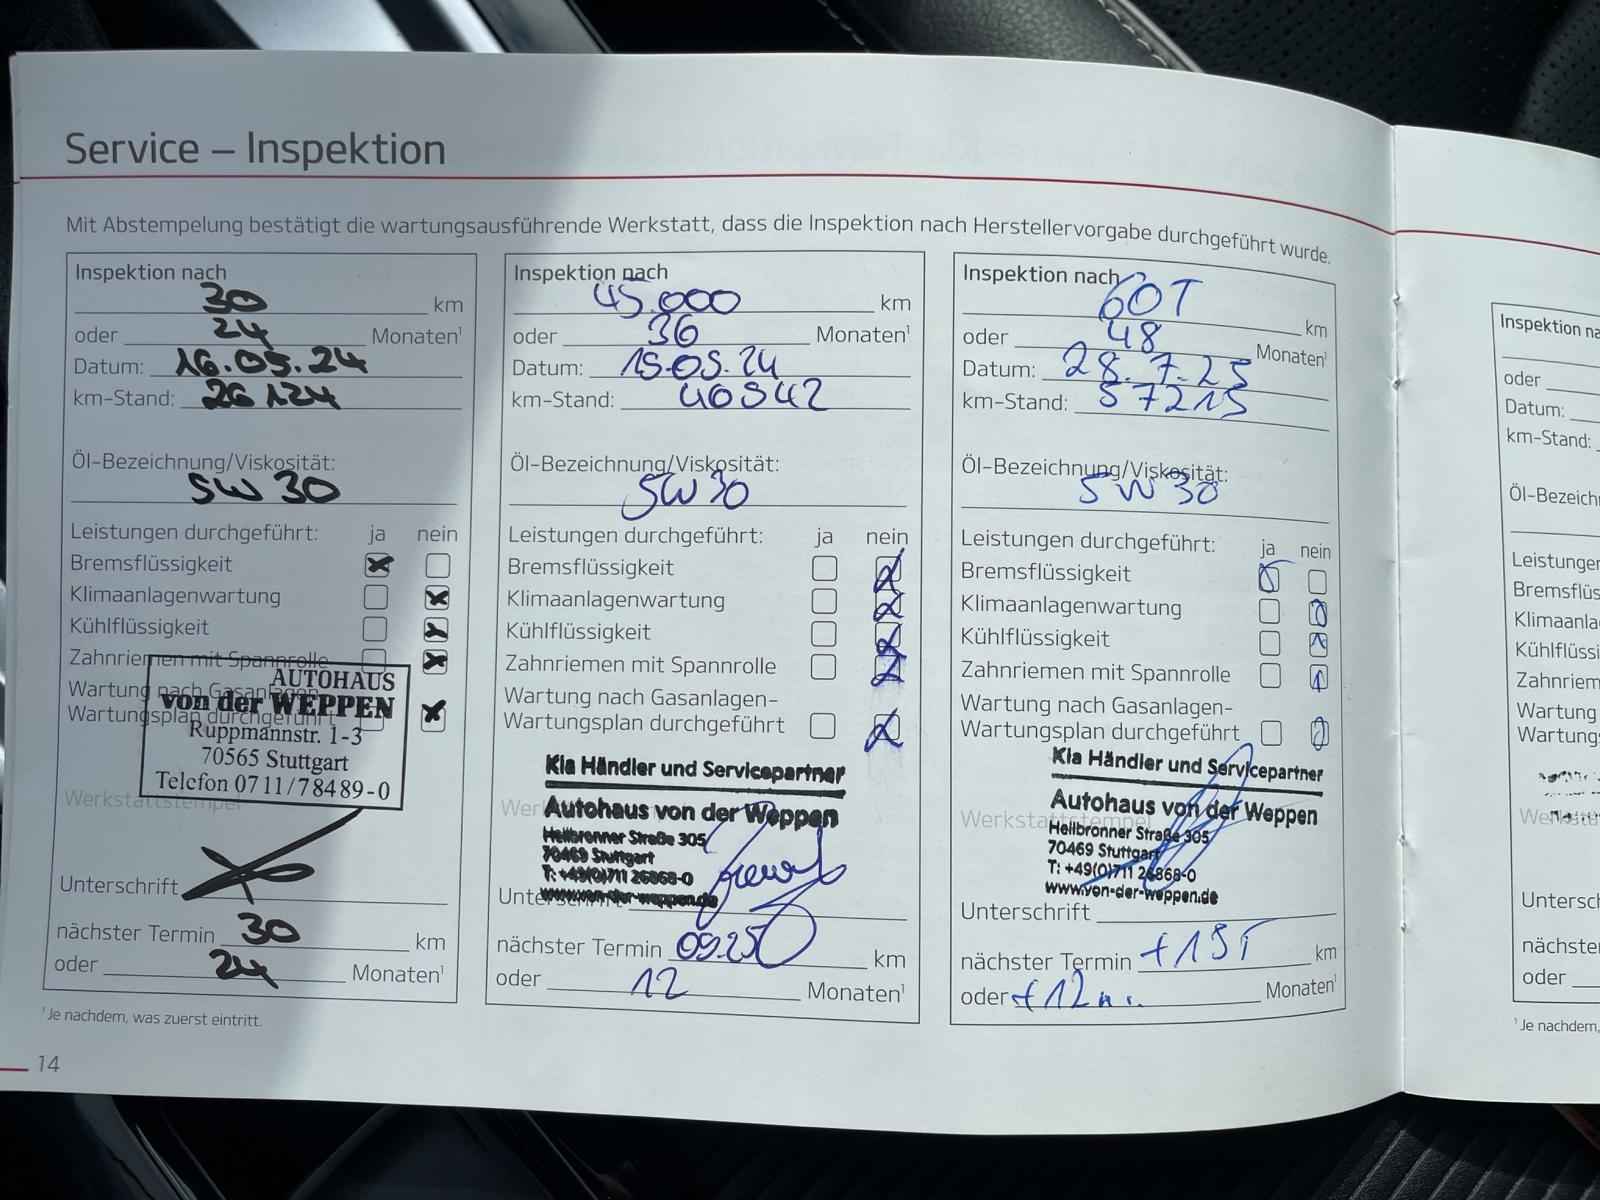 Service – Inspektion
Mit Abstempelung bestätigt die wartungsausführende Werkstatt, dass die Inspektion nach Herstellervorgabe durchgeführt wurde.
Inspektion nach
30 km
oder 24 Monaten¹
Datum: 16.05.24
km-Stand: 26124
Öl-Bezeichnung/Viskosität:
5W30
Leistungen durchgeführt: ja nein
Bremsflüssigkeit
Klimaanlagenwartung
Kühlflüssigkeit
Zahnriemen mit Spannrolle
Wartung nach Gasanlagen-
Wartungsplan durchgeführt
AUTOHAUS
von der WEPPEN
Ruppmannstr. 1-3
70565 Stuttgart
Telefon 0711/78489-0
Werkstattstempel
Unterschrift
nächster Termin 30 km
oder 24 Monaten¹
Inspektion nach
45.000 km
oder 36 Monaten¹
Datum: 15.05.24
km-Stand: 40542
Öl-Bezeichnung/Viskosität:
5W30
Leistungen durchgeführt: ja nein
Bremsflüssigkeit
Klimaanlagenwartung
Kühlflüssigkeit
Zahnriemen mit Spannrolle
Wartung nach Gasanlagen-
Wartungsplan durchgeführt
Kia Händler und Servicepartner
Autohaus von der Weppen
Heilbronner Straße 305
70469 Stuttgart
T: +49(0)711 26868-0
www.von-der-weppen.de
Unterschrift
nächster Termin 09.25 km
oder 12 Monaten¹
Inspektion nach
60T km
oder 48 Monaten¹
Datum: 28.7.25
km-Stand: 57215
Öl-Bezeichnung/Viskosität:
5W30
Leistungen durchgeführt: ja nein
Bremsflüssigkeit
Klimaanlagenwartung
Kühlflüssigkeit
Zahnriemen mit Spannrolle
Wartung nach Gasanlagen-
Wartungsplan durchgeführt
Kia Händler und Servicepartner
Autohaus von der Weppen
Werkstattstempel
Heilbronner Straße 305
70469 Stuttgart
T: +49(0)711 26868-0
www.von-der-weppen.de
Unterschrift
nächster Termin +15T km
oder +12 m. Monaten¹
¹ Je nachdem, was zuerst eintritt.
14
Inspektion na
oder
Datum:
km-Stand:
Öl-Bezeich
Leistunger
Bremsflüs
Klimaanla
Kühlflüssi
Zahnriem
Wartung
Wartungs
Untersch
nächste
oder
¹ Je nachdem,